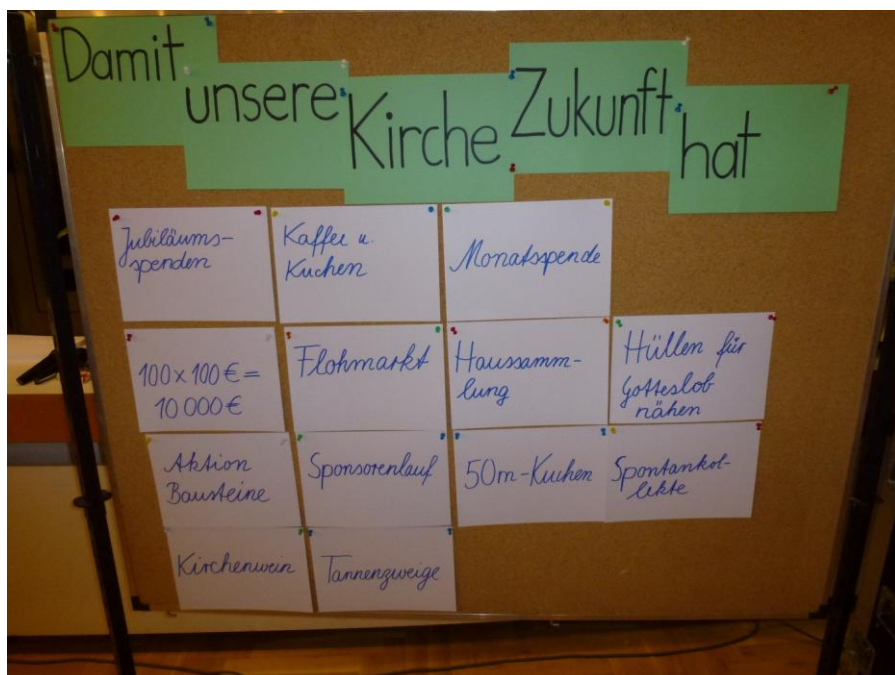 Damit unsere Kirche Zukunft hat
Jubiläums-
spenden
Kaffee u.
Kuchen
Monatsspende
100 x 100 € =
10 000 €
Flohmarkt
Haussamm-
lung
Hüllen für
Gotteslob
nähen
Aktion
Bausteine
Sponsorenlauf
50m-Kuchen
Spontankol-
lekte
Kirchenwein
Tannenzweige